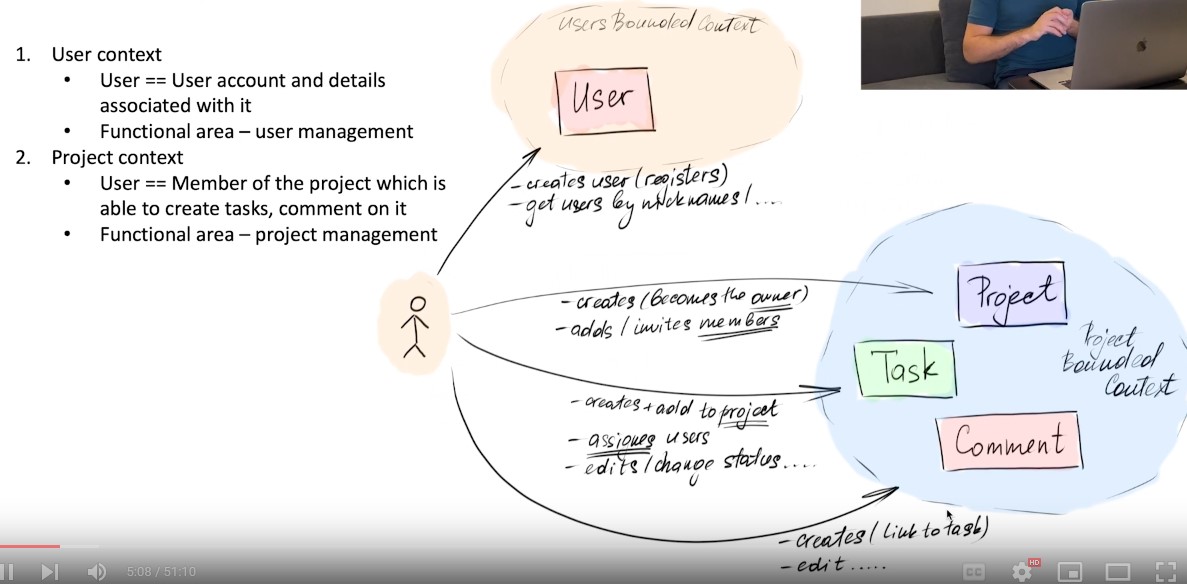 1. User context
• User == User account and details
associated with it
• Functional area – user management
2. Project context
• User == Member of the project which is
able to create tasks, comment on it
• Functional area – project management
Users Bounded Context
User
- creates user (registers)
- get users by nicknames / ....
- creates (becomes the owner)
- adds / invites members
Project
Task
Comment
Project
Bounded
Context
- creates + add to project
- assignes users
- edits / change status....
- creates / link to task)
- edit .....
5:08 / 51:10
CC
HD